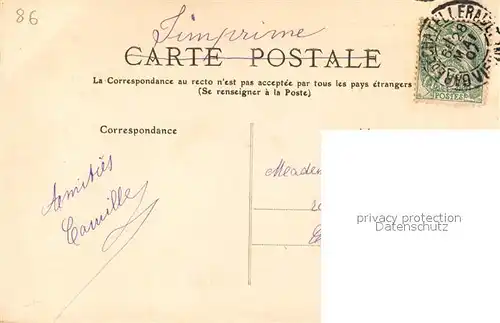 86
Imprimé
CARTE POSTALE
La Correspondance au recto n'est pas acceptée par tous les pays étrangers
(Se renseigner à la Poste)
POSTES
Correspondance
Amitiés
Camille
privacy protection
Datenschutz